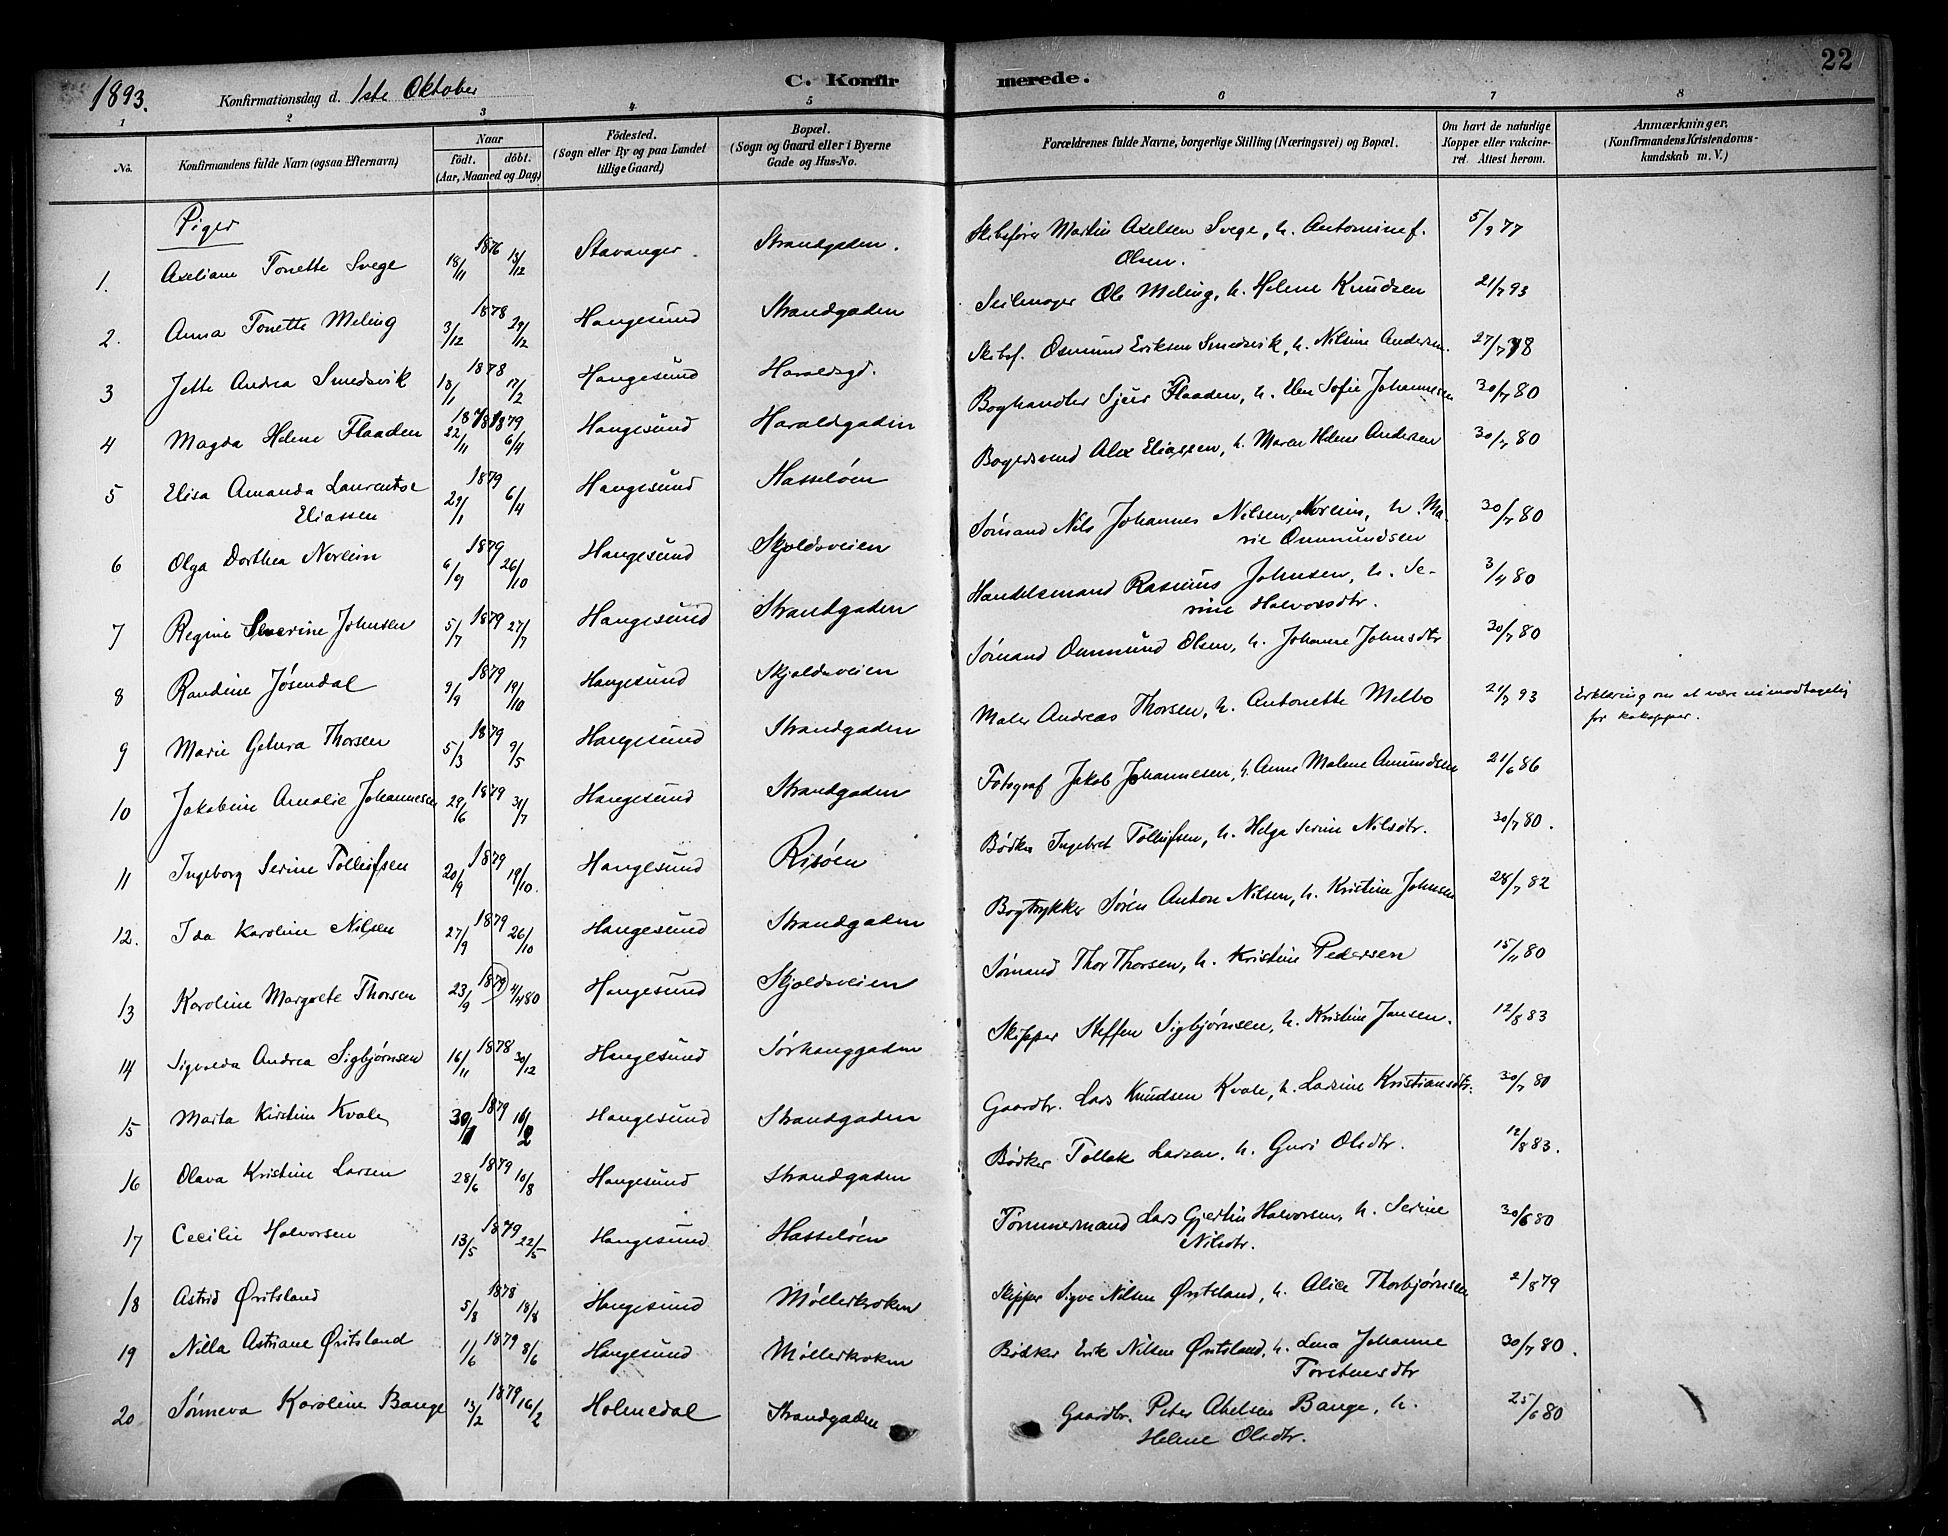 1893.
Konfirmationsdag d. 1ste Oktober
C. Konfirmerede.
22
1 2 3 4 5 6 7 8
No.
Konfirmandens fulde Navn (ogsaa Efternavn)
Naar
födt. döbt.
(Aar, Maaned og Dag)
Födested.
(Sogn eller By og paa Landet
tillige Gaard)
Bopæl.
(Sogn og Gaard eller i Byerne
Gade og Hus-No.
Forældrenes fulde Navne, borgerlige Stilling (Næringsvei) og Bopæl.
Om havt de naturlige
Kopper eller vakcine-
ret. Attest herom.
Anmærkninger.
(Konfirmandens Kristendoms-
kundskab m. V.)
Piger
1. Axeliane Tonette Svege 18/11 1876 13/12 Stavanger. Strandgaden. Skibsfører Martin Axelsen Svege, h. Antomine f. 5/9 77
Olsen.
2. Anna Tonette Meling 3/12 1878 29/12 Haugesund Strandgaden Seilmager Ole Meling, h. Helene Knudsen 21/7 93
3 Jette Andrea Smedsvik 18/1 1878 17/2 Haugesund Haraldsgd. Skibsf. Osmund Eriksen Smedsvik, h. Nilsine Andersen. 27/7 78
4 Magda Helene Flaaden 22/11 1878 1879 6/4 Haugesund Haraldgaden Boghandler Sjur Flaaden, h. Elen Sofie Johannesen 30/7 80
5 Elisa Amanda Laurentse 29/1 1879 6/4 Haugesund Hasseløen Bagersvend Alex Eliassen, h. Maren Helene Andersen 30/7 80
Eliassen
6 Olga Dorthea Norlein 6/9 1879 26/10 Haugesund Skjoldsveien Sømand Nils Johannes Nilsen, Norlein, h. Ma- 30/7 80
rie Ommundsen
7 Regine Severine Johnsen 5/7 1879 27/7 Haugesund Strandgaden Handelsmand Rasmus Johnsen, h. Se- 3/4 80
rine Halvorsdtr.
8 Randine Jøsendal 9/9 1879 19/10 Haugesund Skjoldsveien Sømand Ommund Olsen, h. Johanne Johnsdtr 30/7 80
9 Marie Gehura Thorsen 5/3 1879 9/5 Haugesund Strandgaden Maler Andreas Thorsen, h. Antonette Melbo 21/7 93 Erklæring om at være uimodtagelig
for kokopper.
10 Jakobine Amalie Johannesen 29/6 1879 31/7 Haugesund Strandgaden Fotograf Jakob Johannesen, h. Anne Malene Amundsen 21/6 86
11 Ingeborg Serine Tolleifsen 20/9 1879 19/10. Haugesund Risøen Bødker Ingebret Tolleifsen, h. Helga Serine Nilsdtr. 30/7 80.
12. Ida Karoline Nilsen 27/9 1879 26/10 Haugesund Strandgaden Bogtrykker Søren Anton Nilsen, h. Kristine Johnsen 28/7 82
13 Karoline Margrete Thorsen 23/9 1879 4/4 80 Haugesund Skjoldsveien Sømand Thor Thorsen, h. Kristine Pedersen 15/11 80
14 Sigvalda Andrea Sigbjørnsen 16/11 1878 30/12 Haugesund Sørhauggaden Skipper Steffen Sigbjørnsen, h. Kristine Jansen. 12/8 83
15 Marta Kirstine Kvale 30/1 1879 16/2 Haugesund Strandgaden Gaardbr. Lars Knudsen Kvale, h. Larsine Kristiansdtr. 30/7 80
16 Olava Kristine Larsen 28/6 1879 10/8 Haugesund Strandgaden Bødker Tollak Larsen, h. Guri Olsdtr. 12/8 83.
17 Cecilie Halvorsen 13/5 1879 22/5 Haugesund Hasseløen Tømmermand Lars Gjertin Halvorsen, h. Serine 30/6 80
Nilsdtr.
18 Astrid Øvitsland 5/8 1878 18/8 Haugesund Møllerkroken Skipper Sigve Nilsen Øvitsland, h. Alice Thorbjørnsen 2/8 79
19 Nilla Astriane Øvitsland 1/6 1879 8/6 Haugesund Møllerkroken Bødker Erik Nilsen Øvitsland, h. Lena Johanne 30/7 80.
Torstensdtr
20 Sønneva Karoline Bauge 13/2 1879 16/2 Holmedal Strandgaden Gaardbr. Peter Abelsen Bauge, h. 25/6 80
Helene Olsdtr.